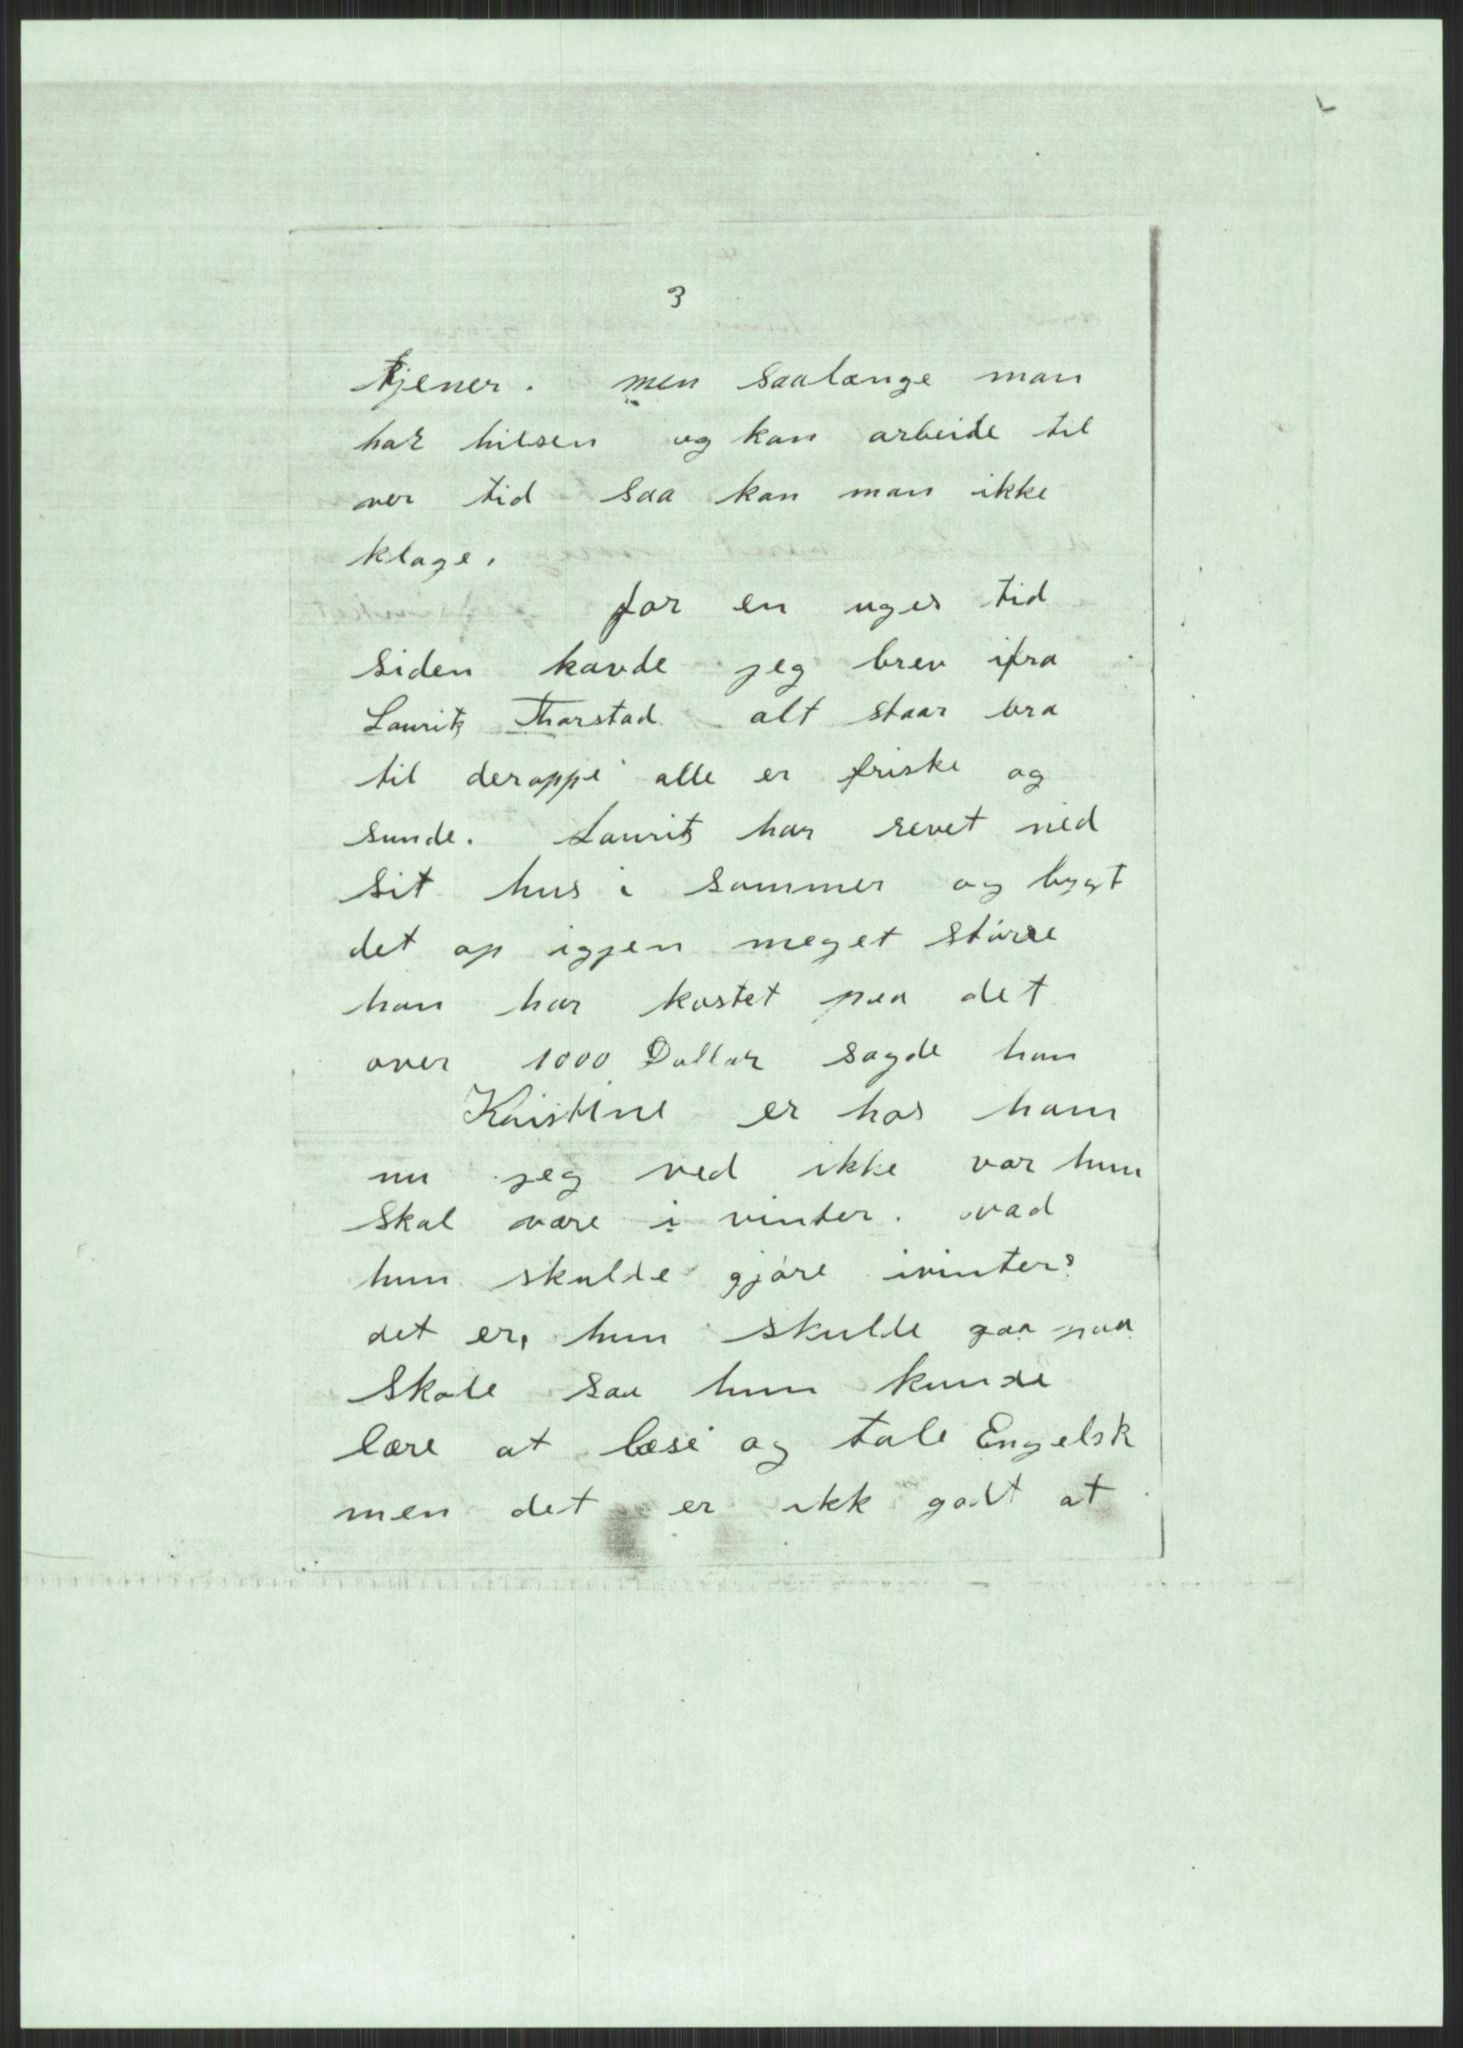 3
tjener. men saalænge man
har hilsen og kan arbeide til
ver tid saa kan man ikke
klage.
for en uges tid
siden havde jeg brev ifra
Lauritz Thorstad alt staar bra
til deroppe alle er friske og
sunde. Lauritz har revet ned
sit hus i sommer og bygt
det op igjen meget større
han har kostet paa det
over 1000 Dollar sagde han
Kristine er hos ham
nu jeg ved ikke var hun
skal være i vinter. vad
hun skulde gjøre ivinter?
det er, hun skulde gaa paa
Skole saa hun kunde
lære at læse og tale Engelsk
men det er ikk godt at